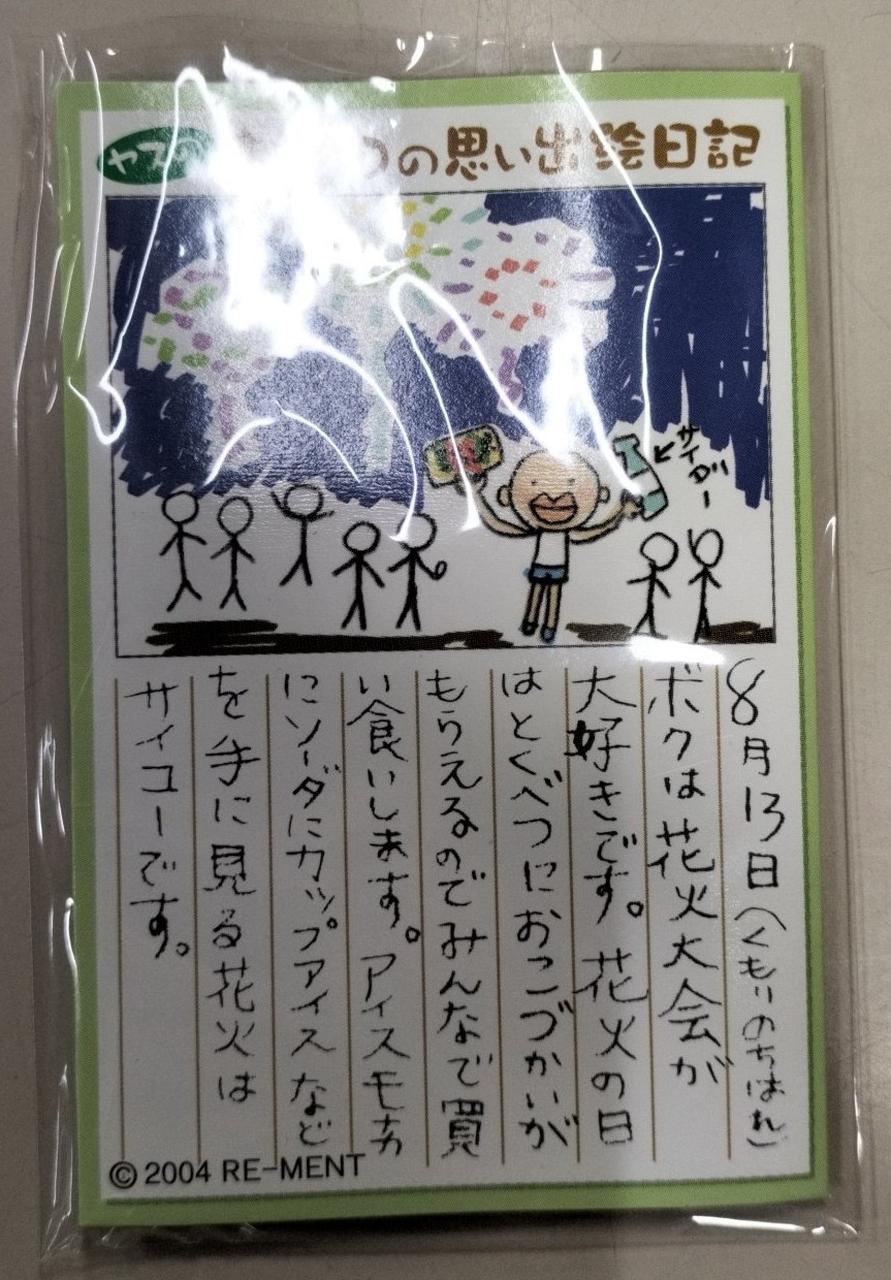 ヤスの
の思い出絵日記
サイダー
8月13日(くもりのちはれ)
ボクは花火大会が
大好きです。花火の日
はとくべつにおこづかいが
もらえるのでみんなで買
い食いします。アイスモナカ
にソーダにカップアイスなど
を手に見る花火は
サイコーです。
© 2004 RE-MENT